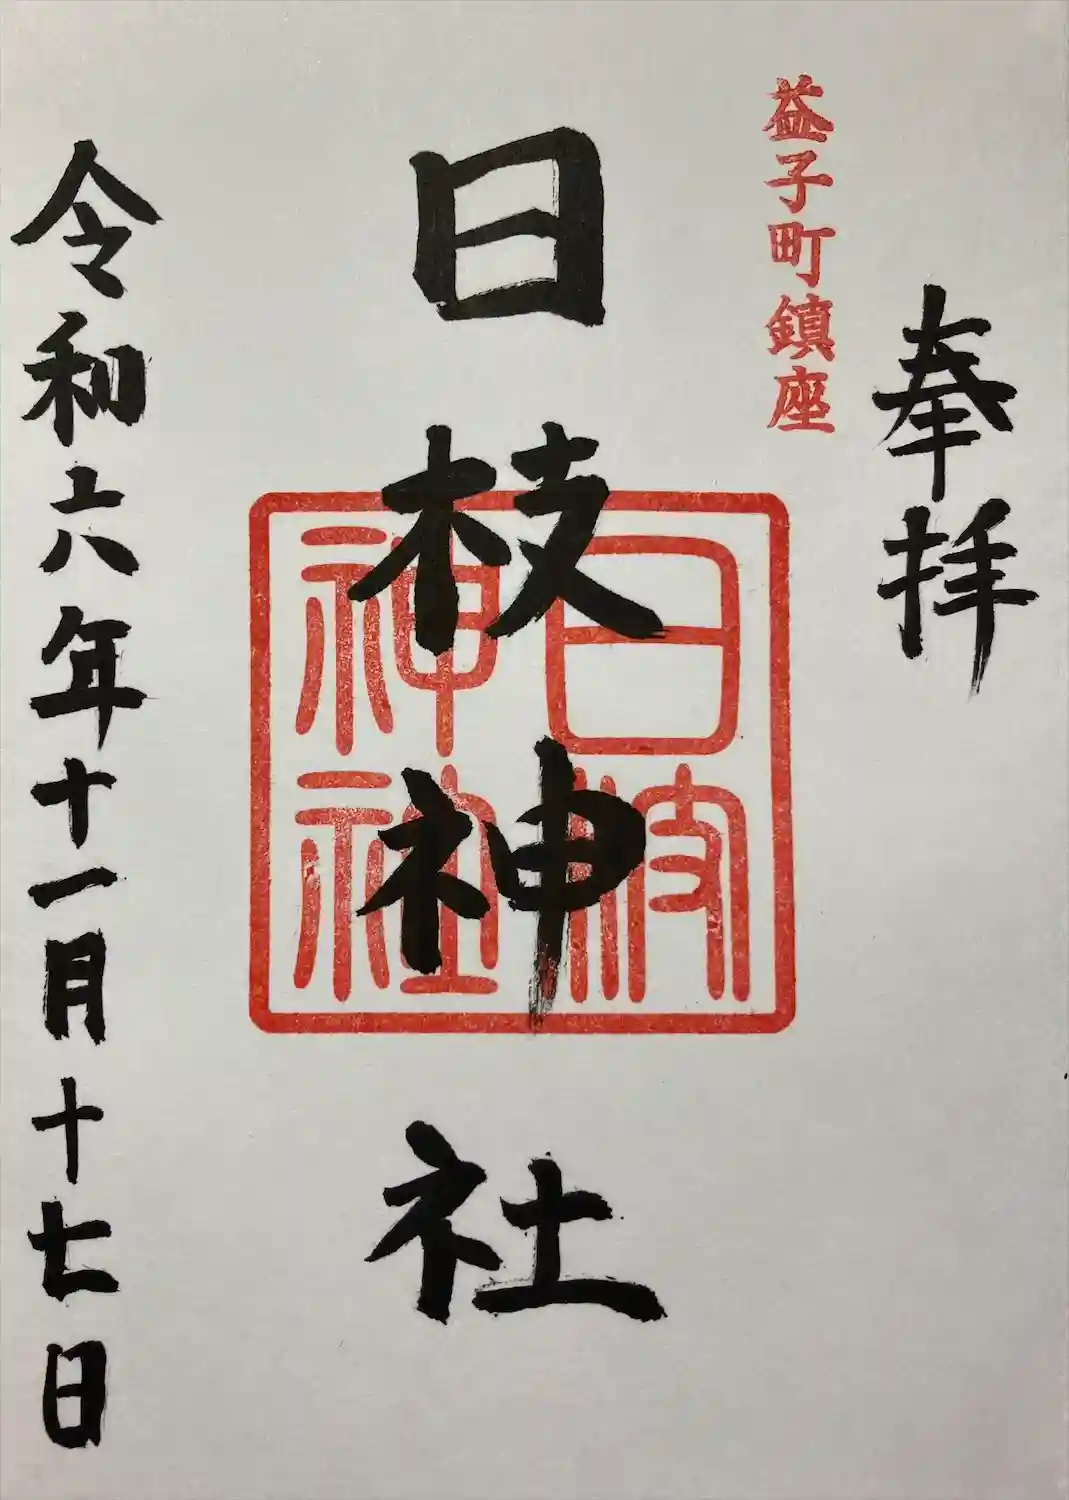 奉拝
益子町鎮座
日枝神社
日枝
神社
令和六年十一月十七日